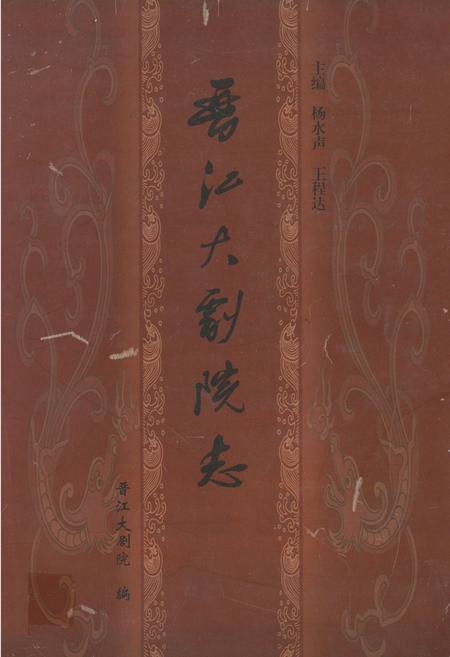 主编 杨水声 王程达
晋江大剧院志
晋江大剧院 编